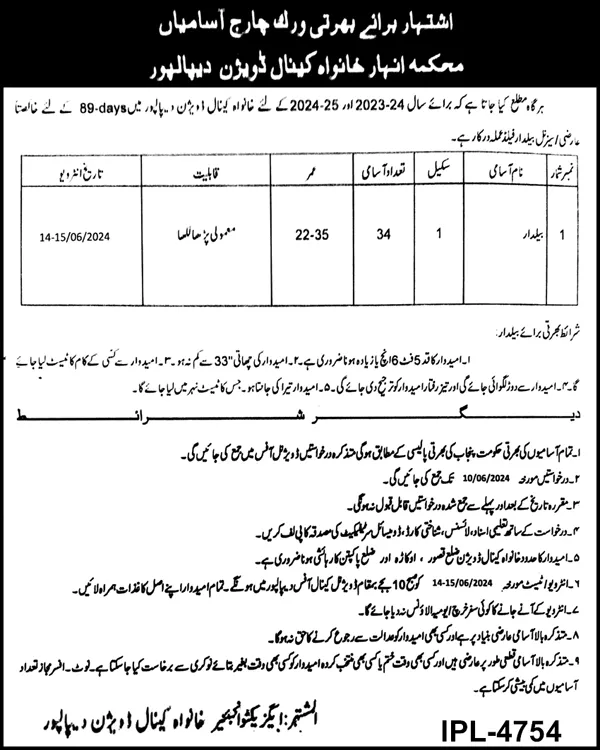 اشتہار برائے بھرتی ورک چارج آسامیاں
محکمہ انہار خانواہ کینال ڈویژن دیپالپور
ہر گاہ مطلع کیا جاتا ہے کہ برائے سال 24-2023 اور 25-2024 کے لئے خانواہ کینال ڈویژن دیپالپور میں 89-days کے لئے خالصتاً
عارضی/سیزنل بیلدار فیلڈ عملہ درکار ہے۔
نمبر شمار نام آسامی سکیل تعداد آسامی عمر قابلیت تاریخ انٹرویو
1 بیلدار 1 34 22-35 معمولی پڑھا لکھا 14-15/06/2024
شرائط بھرتی برائے بیلدار:
۱۔ امیدوار کا قد 5 فٹ 6 انچ یا زیادہ ہونا ضروری ہے۔ ۲۔ امیدوار کی چھاتی "33 سے کم نہ ہو۔ ۳۔ امیدوار سے کسی کے کام کا ٹیسٹ لیا جائے
گا۔ ۴۔ امیدوار سے دوڑ لگوائی جائے گی اور تیز رفتار امیدوار کو ترجیح دی جائے گی۔ ۵۔ امیدوار تیراکی جانتا ہو۔ جس کا ٹیسٹ نہر میں لیا جائے گا۔
دیگر شرائط
۱۔ تمام آسامیوں کی بھرتی حکومت پنجاب کی بھرتی پالیسی کے مطابق ہوگی متذکرہ درخواستیں ڈویژنل آفس میں جمع کی جائیں گی۔
۲۔ درخواستیں مورخہ 10/06/2024 تک جمع کی جائیں گی۔
۳۔ مقررہ تاریخ کے بعد اور پہلے سے جمع شدہ درخواستیں قابل قبول نہ ہونگی۔
۴۔ درخواست کے ساتھ تعلیمی اسناد، لائسنس، شناختی کارڈ، ڈومیسائل سرٹیفکیٹ کی مصدقہ کاپی لف کریں۔
۵۔ امیدوار کا حدود خانواہ کینال ڈویژن ضلع قصور، اوکاڑہ اور ضلع پاکپتن کا رہائشی ہونا ضروری ہے۔
۶۔ انٹرویو/ٹیسٹ مورخہ 14-15/06/2024 کو صبح 10 بجے بمقام ڈویژنل کینال آفس دیپالپور میں ہونگے۔ تمام امیدوار اپنے اصل کاغذات ہمراہ لائیں۔
۷۔ انٹرویو کے آنے جانے کا کوئی سفر خرچ/یومیہ الاؤنس نہ دیا جائے گا۔
۸۔ متذکرہ بالا آسامی عارضی بنیاد پر ہے اور کسی بھی امیدوار کو عدالت سے رجوع کرنے کا حق نہ ہوگا۔
۹۔ متذکرہ بالا آسامی قطعی طور پر عارضی ہیں اور کسی بھی وقت ختم یا کسی بھی منتخب کردہ امیدوار کو کسی بھی وقت بغیر بتائے نوکری سے برخاست کیا جا سکتا ہے۔ نوٹ۔ افسر مجاز تعداد
آسامیوں میں کمی بیشی کر سکتا ہے۔
المشتہر: ایگزیکٹو انجینئر خانواہ کینال ڈویژن دیپالپور
IPL-4754